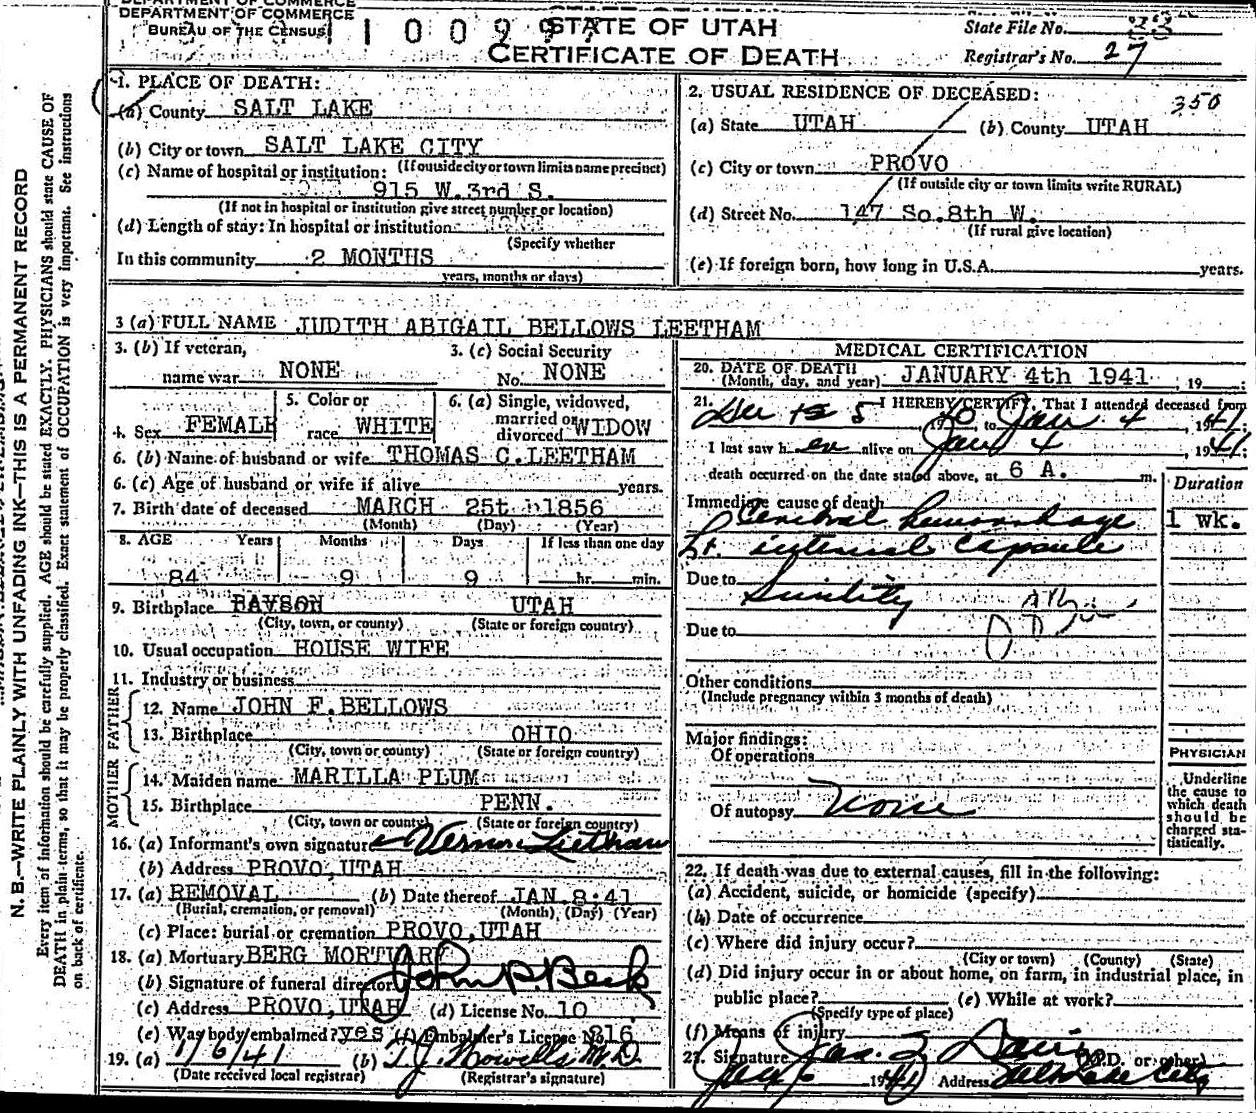 DEPARTMENT OF COMMERCE
DEPARTMENT OF COMMERCE
BUREAU OF THE CENSUS
STATE OF UTAH
CERTIFICATE OF DEATH
State File No. 33
Registrar's No. 27
N. B.—WRITE PLAINLY WITH UNFADING INK—THIS IS A PERMANENT RECORD
Every item of information should be carefully supplied. AGE should be stated EXACTLY. PHYSICIANS should state CAUSE OF
DEATH in plain terms, so that it may be properly classified. Exact statement of OCCUPATION is very important. See instructions
on back of certificate.
1. PLACE OF DEATH:
(a) County SALT LAKE
(b) City or town SALT LAKE CITY
(If outside city or town limits name precinct)
(c) Name of hospital or institution:
915 W.3rd S.
(If not in hospital or institution give street number or location)
(d) Length of stay: In hospital or institution
(Specify whether
In this community 2 MONTHS
years, months or days)
2. USUAL RESIDENCE OF DECEASED:
350
(a) State UTAH (b) County UTAH
(c) City or town PROVO
(If outside city or town limits write RURAL)
(d) Street No. 147 So.8th W.
(If rural give location)
(e) If foreign born, how long in U.S.A. years.
3 (a) FULL NAME JUDITH ABIGAIL BELLOWS LEETHAM
3. (b) If veteran,
name war NONE
3. (c) Social Security
No. NONE
4. Sex FEMALE
5. Color or
race WHITE
6. (a) Single, widowed,
married or
divorced WIDOW
6. (b) Name of husband or wife THOMAS C.LEETHAM
6. (c) Age of husband or wife if alive years.
7. Birth date of deceased MARCH 25t 1856
(Month) (Day) (Year)
8. AGE Years Months Days If less than one day
84 9 9 hr. min.
9. Birthplace PAYSON UTAH
(City, town, or county) (State or foreign country)
10. Usual occupation HOUSE WIFE
11. Industry or business
FATHER
12. Name JOHN F.BELLOWS
13. Birthplace OHIO
(City, town or county) (State or foreign country)
MOTHER
14. Maiden name MARILLA PLUM
15. Birthplace PENN.
(City, town or county) (State or foreign country)
16. (a) Informant's own signature Vernon Leetham
(b) Address PROVO,UTAH
17. (a) REMOVAL (b) Date thereof JAN.8.41
(Burial, cremation, or removal) (Month) (Day) (Year)
(c) Place: burial or cremation PROVO,UTAH
18. (a) Mortuary BERG MORTUARY
(b) Signature of funeral director John P. Beck
(c) Address PROVO,UTAH (d) License No. 10
(e) Was body embalmed? yes (f) Embalmer's License 316
19. (a) 1/6/41 (b) T. J. Howells M.D.
(Date received local registrar) (Registrar's signature)
MEDICAL CERTIFICATION
20. DATE OF DEATH
(Month, day, and year) JANUARY 4th 1941, 19 ;
21. I HEREBY CERTIFY, That I attended deceased from
Dec 5, 1940, to Jan 4, 1941;
I last saw her alive on Jan 4, 1941;
death occurred on the date stated above, at 6 A. m.
Duration
Immediate cause of death
Cerebral hemorrhage 1 wk.
Lt. internal capsule
Due to Senility
Due to
Other conditions
(Include pregnancy within 3 months of death)
Major findings:
Of operations
Of autopsy None
PHYSICIAN
Underline
the cause to
which death
should be
charged sta-
tistically.
22. If death was due to external causes, fill in the following:
(a) Accident, suicide, or homicide (specify)
(b) Date of occurrence
(c) Where did injury occur?
(City or town) (County) (State)
(d) Did injury occur in or about home, on farm, in industrial place, in
public place? (e) While at work?
(Specify type of place)
(f) Means of injury
23. Signature Jas. Z. Davis (M.D. or other)
Jan 6 1941 Address Salt Lake City